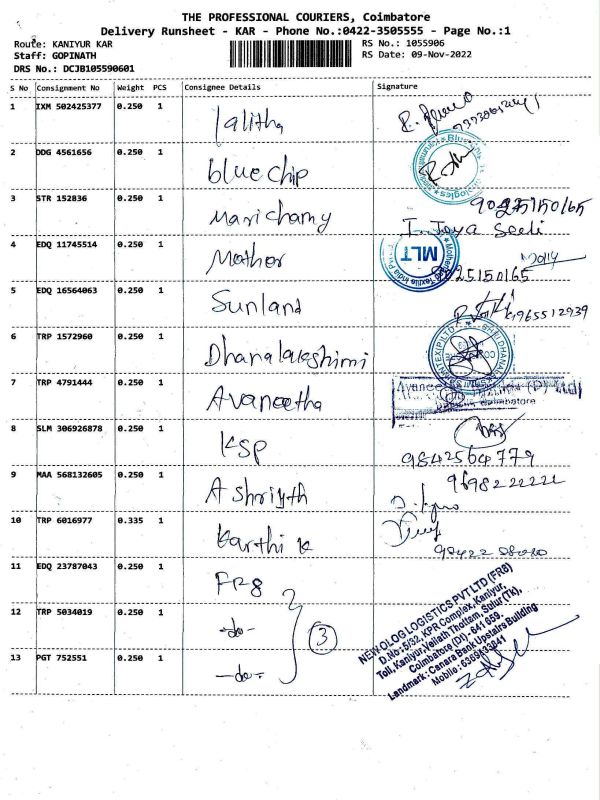 THE PROFESSIONAL COURIERS, Coimbatore
Delivery Runsheet - KAR - Phone No.:0422-3505555 - Page No.:1
Route: KANIYUR KAR
RS No.: 1055906
Staff: GOPINATH
RS Date: 09-Nov-2022
DRS No.: DCJB105590601
S No Consignment No Weight PCS Consignee Details Signature
1 IXM 502425377 0.250 1 Lalitha
2 DDG 4561656 0.250 1 bluechip
3 STR 152836 0.250 1 Marichamy 9025150165
4 EDQ 11745514 0.250 1 Mother MLT
9025150165
5 EDQ 16564063 0.250 1 Sunland 6965512939
6 TRP 1572960 0.250 1 Dhanalakshimi
7 TRP 4791444 0.250 1 Avaneetha
Coimbatore
8 SLM 306926878 0.250 1 KSP
9842564779
9 MAA 568132605 0.250 1 Ashriyth 9698222222
10 TRP 6016977 0.335 1 Karthi k
11 EDQ 23787043 0.250 1 FR8
12 TRP 5034019 0.250 1 -do- 3
13 PGT 752551 0.250 1 -do-
NEW OLOG LOGISTICS PVT LTD (FR8)
D.No:5/32, KPR Complex, Kaniyur,
Toll, Kaniyur, Vellath Thottam, Sulur (TK),
Coimbatore (Dt) - 641 659.
Landmark: Canara Bank Upstairs Building
Mobile: 6369433841